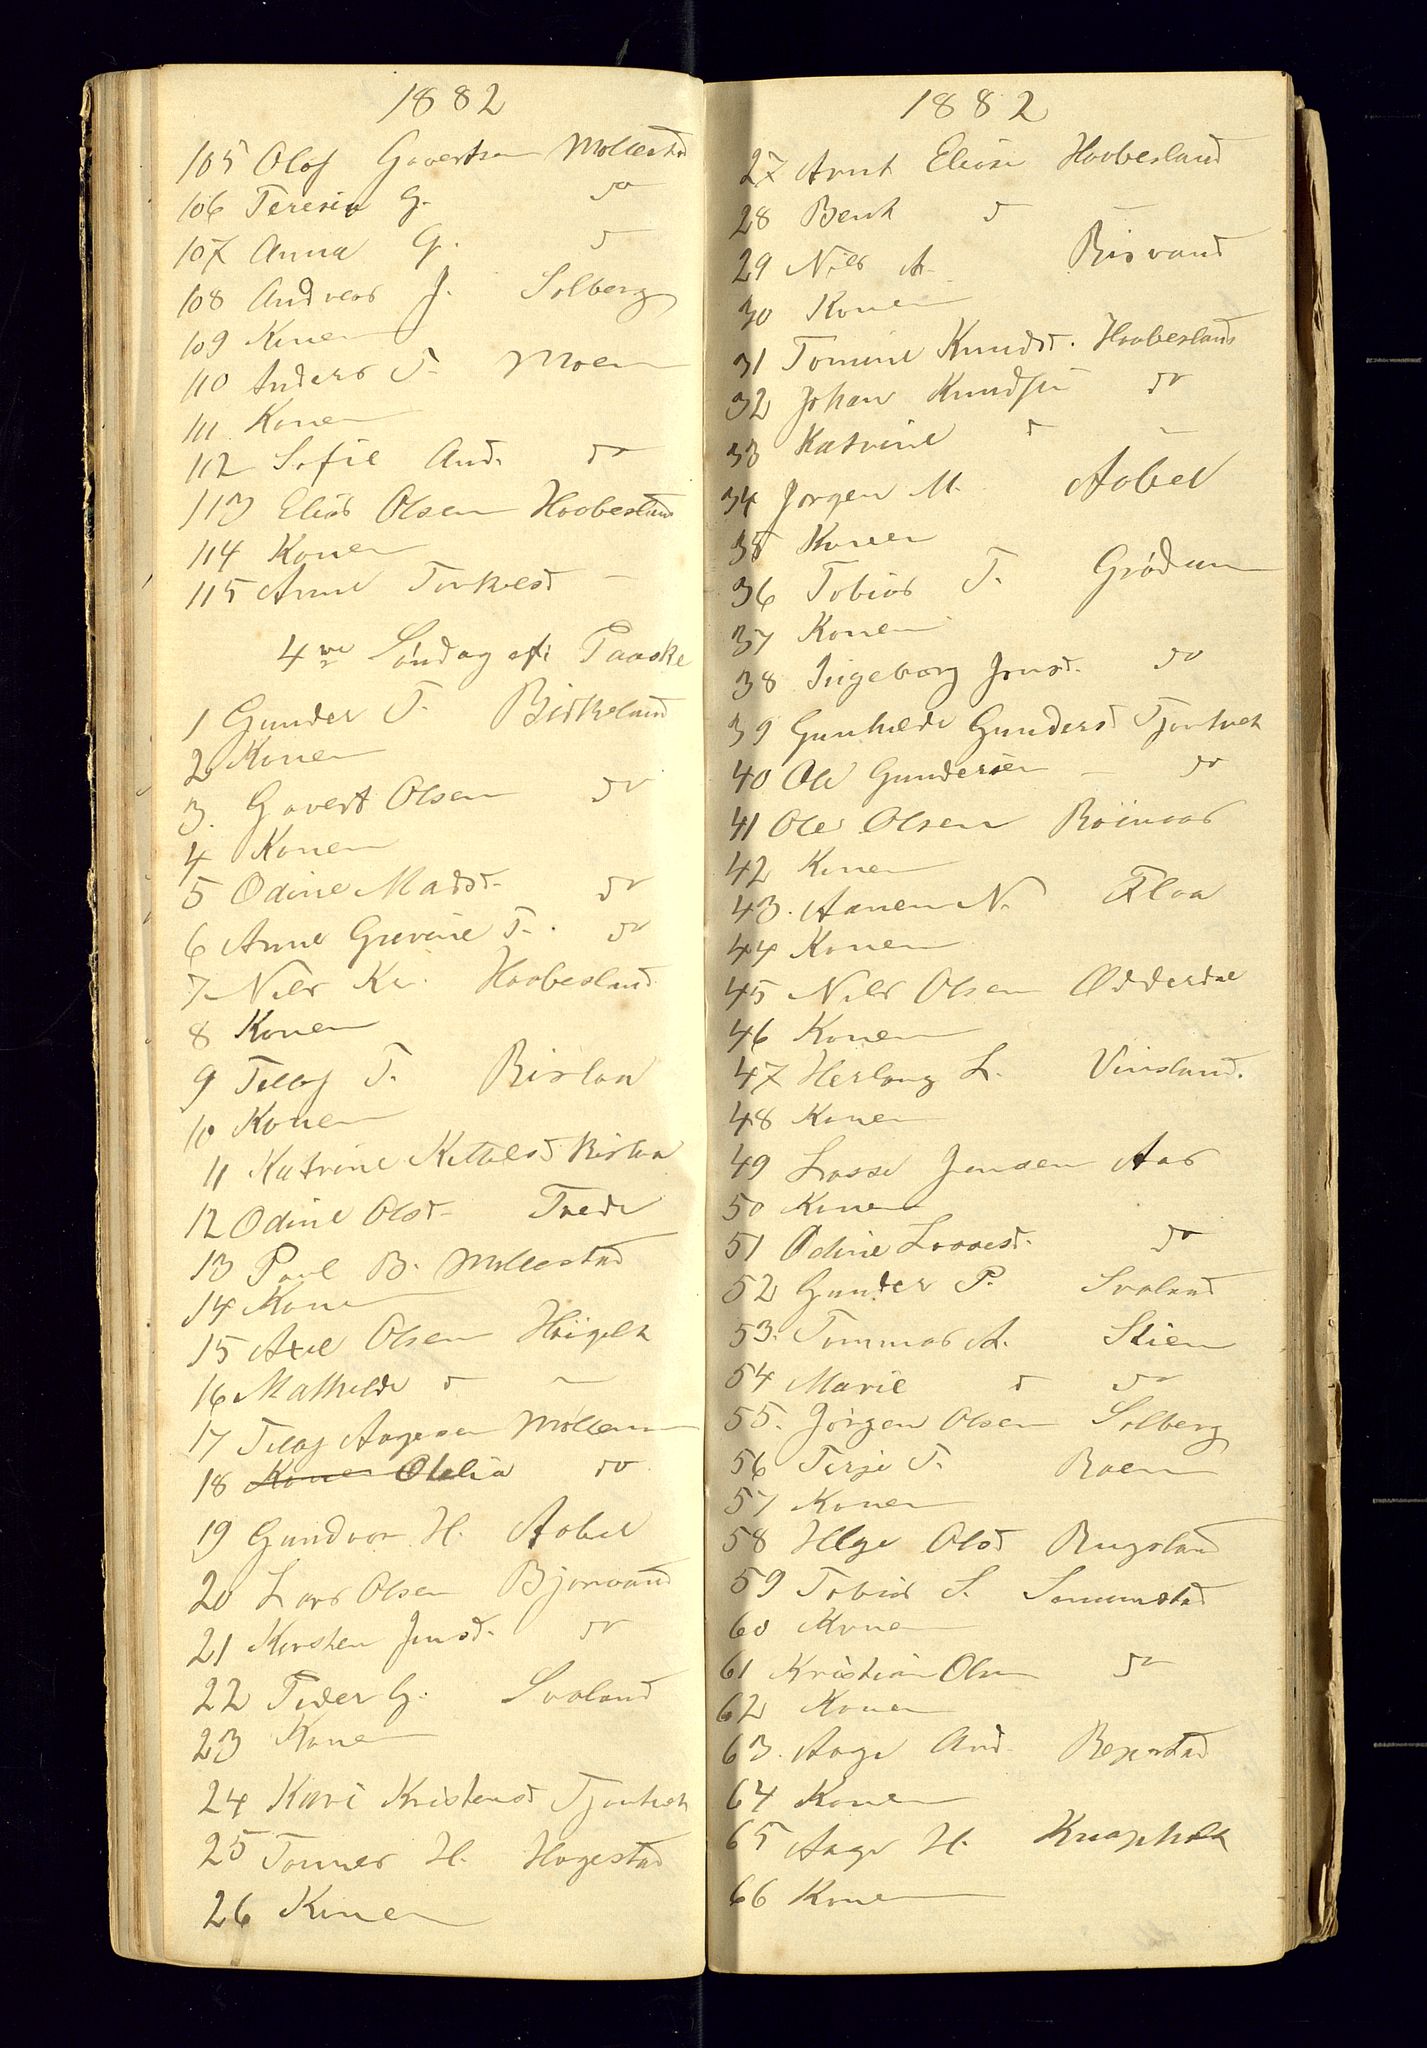 1882
105 Olaf Govertsen Mollestad
106 Teresia G. do
107 Anna G. d
108 Andreas J. Solberg
109 Konen
110 Anders T. Moen
111 Konen
112 Sofie And. do
113 Elias Olsen Haabesland
114 Konen
115 Anne Torkelsd –
4de Søndag eft Paaske
1 Gunder T. Birkeland
2 Konen
3. Govert Olsen do
4 Konen
5 Odine Madsd. do
6 Anne Grevine T. do
7 Nils Kr. Haabesland
8 Konen
9 Tellof T. Birlan
10 Konen
11 Katrine Kettelsd Birlan
12 Odine Olsd. Trede
13 Paul B. Mollestad
14 Konen
15 Axel Olsen
16 Mathilde d –
17 Tellof Aagesen Møllem
18 Konen Otelia do
19 Gundvor H. Aabel
20 Lars Olsen Bjorvand
21 Kirsten Jensd. do
22 Peder G. Svaland
23 Konen
24 Kari Kristensd Tjonholt
25 Tonnes H. Hagestad
26 Konen
1882
27 Arnt Elias Haabesland
28 Bent d –
29 Nils A. Risvand
30 Konen
31 Tomine Knudsd. Haabesland
32 Johan Knudsen do
33 Katrine d –
34 Jørgen M. Aabel
35 Konen
36 Tobias T. Grødum
37 Konen
38 Ingeborg Jensd. do
39 Gunhilde Gundersd Tjonholt
40 Ole Gundersen – do
41 Ole Olsen Röinaas
42 Konen
43. Aanen N. Flaa
44 Konen
45 Nils Olsen Odderdal
46 Konen
47 Herlaug L. Vinsland.
48 Konen
49 Lasse Jensen Aas
50 Konen
51 Odine Lassesd. do
52 Gunder P. Svaland
53. Tommas A. Stien
54 Marie d do
55. Jörgen Olsen Solberg
56 Terje T. Roen
57 Konen
58 Helge Olsd Rugsland
59 Tobias S. Senumstad
60 Konen
61 Kristian Olsen do
62 Konen
63. Aage And. Repstad
64 Konen
65 Aage H. Knapholt
66 Konen